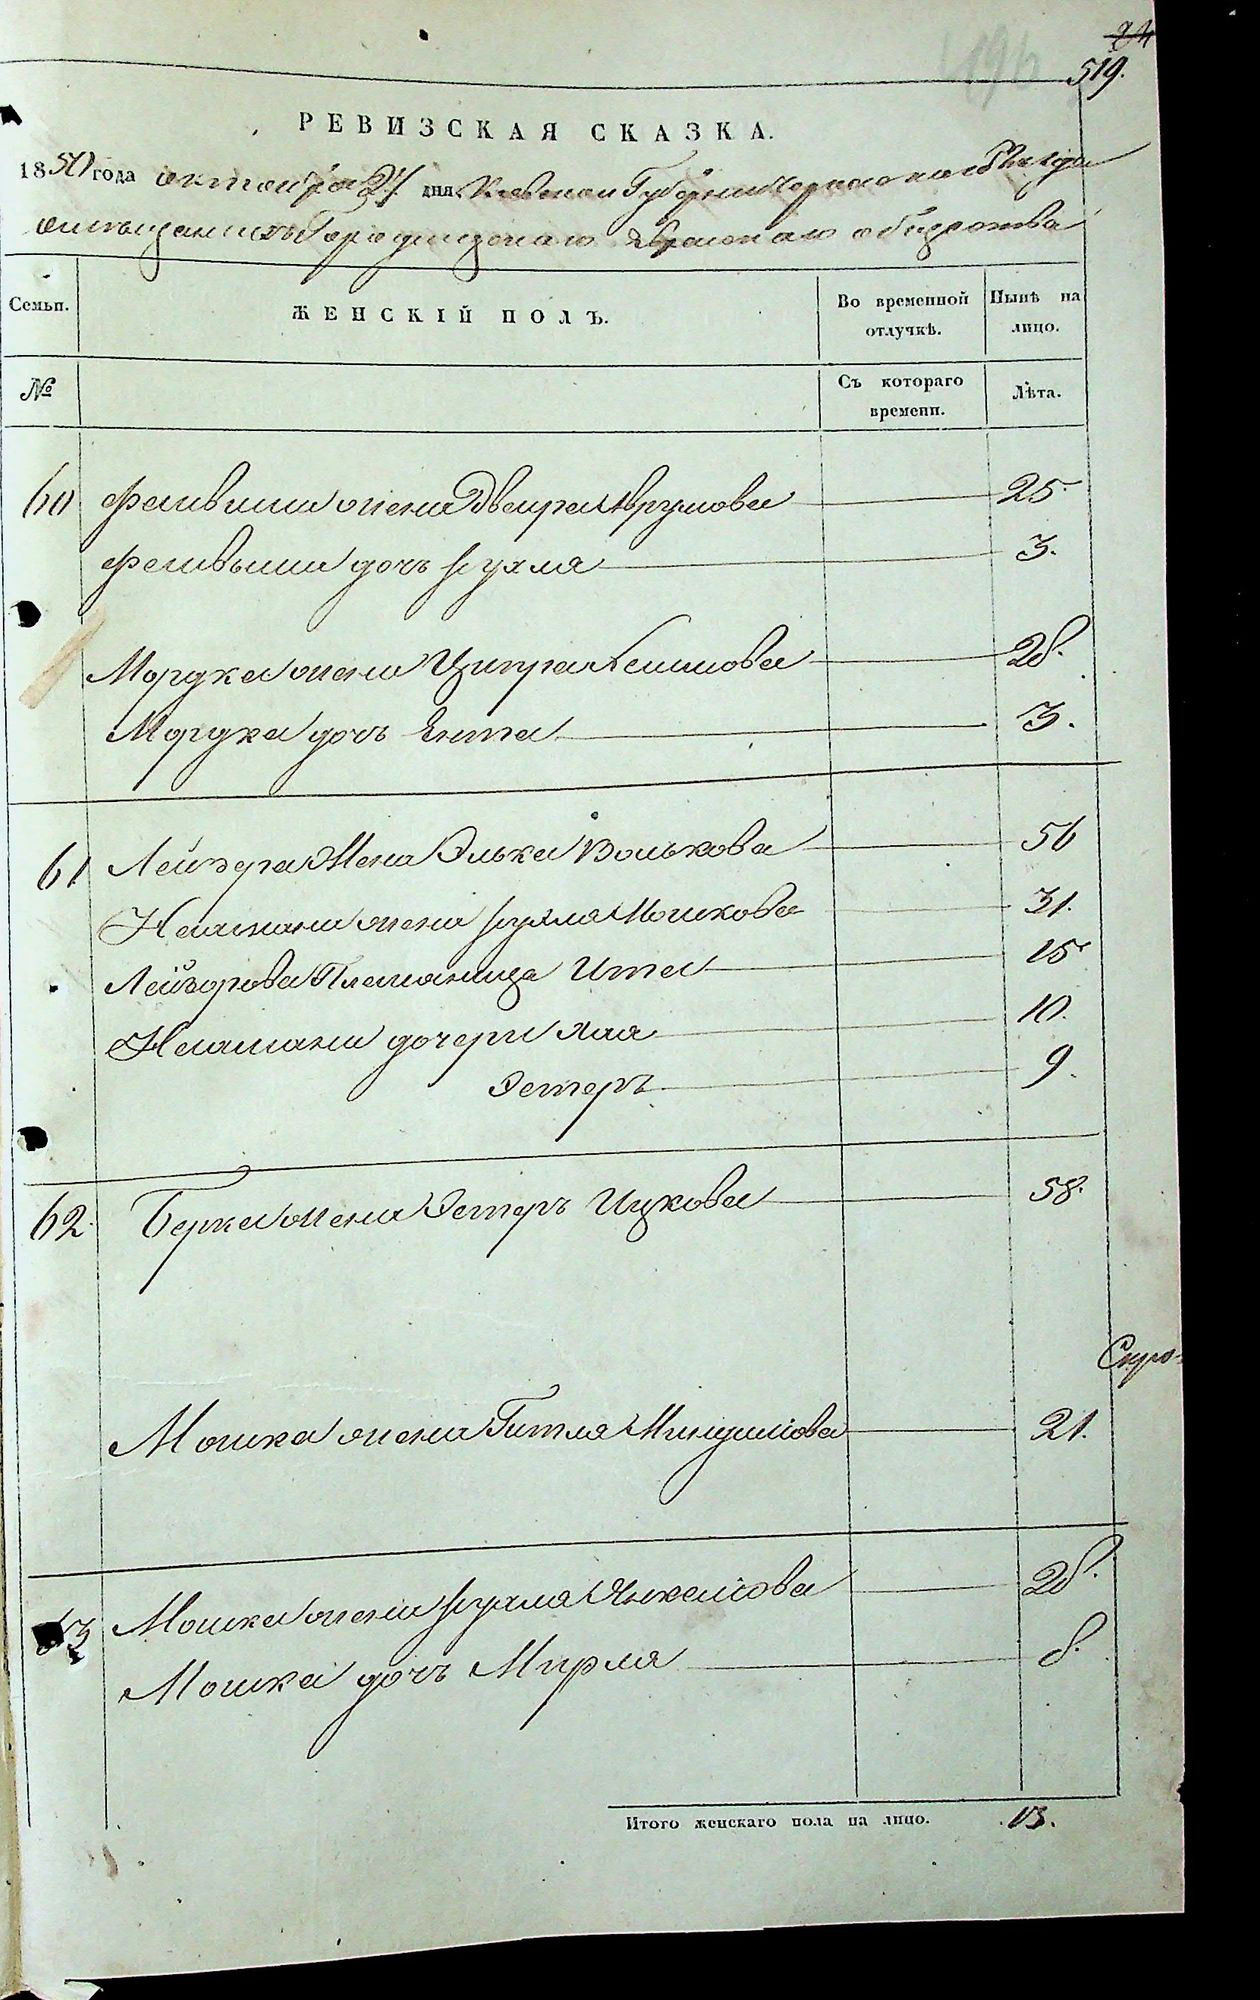 24
519.
РЕВИЗСКАЯ СКАЗКА.
1850 года октября 27 дня Киевской Губернии Черкаского уѣзда
о мѣщанахъ Городищскаго Еврейскаго общества
Семьи. ЖЕНСКІЙ ПОЛЪ. Во временной отлучкѣ. Нынѣ на лицо.
№ Съ котораго времени. Лѣта.
60 Фаивиша жена Двейра Аврумова 25.
Фаивыша дочь Рухля 3.
Мордка жена Ципра 28.
Мордка дочь Ента 3.
61 Лейзера Жена Элька Волькова 56
Нахмана жена Рухля Мошкова 31.
Лейзорова Племяница Ита 15
Нахмана дочери Хая 10.
Эстеръ 9.
62. Берка жена Эстеръ Ицкова 58.
Мошка жена Гитля 21.
63 Мошка жена Рухля Янкелiова 28.
Мошка дочь Мирля 8.
Итого женскаго пола на лицо. 13.